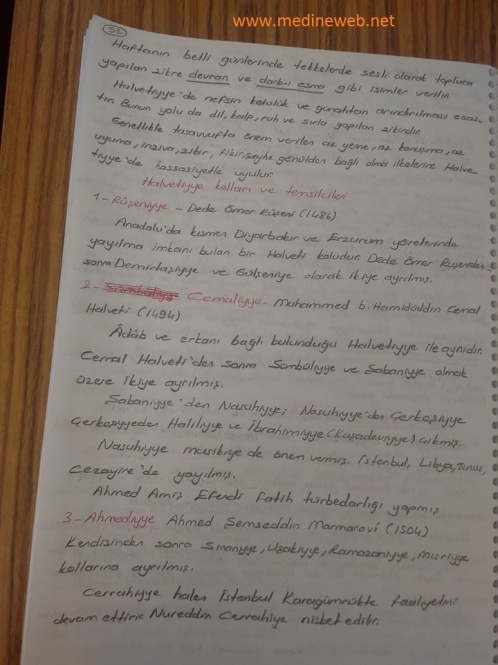 www.medineweb.net
52
Haftanın belli günlerinde tekkelerde sesli olarak topluca
yapılan zikre devran ve darb-ı esma gibi isimler verilir.
Halvetiyye'de nefsin kötülük ve günahtan arındırılması esas-
tır. Bunun yolu da dil, kalp, ruh ve sırla yapılan zikirdir.
Genellikle tasavvufta önem verilen az yeme, az konuşma, az
uyuma, inziva, zikir, fikir, şeyhe gönülden bağlı olma ilkelerine Halve-
tiyye'de hassasiyetle uyulur.
Halvetiyye kolları ve temsilcileri
1- Rûşeniyye - Dede Ömer Rûşenî (1486)
Anadolu'da kısmen Diyarbakır ve Erzurum yörelerinde
yayılma imkanı bulan bir Halveti koludur. Dede Ömer Ruşeniden
sonra Demirtaşiyye ve Gülşeniye olarak ikiye ayrılmış.
2- Sümbüliyye Cemaliyye- Muhammed b. Hamidüddin Cemal
Halveti (1494)
Âdâb ve erkanı bağlı bulunduğu Halvetiyye ile aynıdır.
Cemal Halveti'den sonra Sünbüliyye ve Şabaniyye olmak
üzere ikiye ayrılmış.
Şabaniyye'den Nasuhiyye; Nasuhiyye'den Çerkeşiyye
Çerkeşiyyeden Haliliyye ve İbrahimiyye (Kuşadeviyye) çıkmış.
Nasuhiyye musikiye de önem vermiş. İstanbul, Libya, Tunus,
Cezayire'de yayılmış.
Ahmed Amiş Efendi fatih türbedarlığı yapmış
3- Ahmediyye Ahmed Şemseddin Marmaravî (1504)
Kendisinden sonra Sinaniyye, Uşakiyye, Ramazaniyye, Mısriyye
kollarına ayrılmış.
Cerrahiyye halen İstanbul Karagümrükte faaliyetini
devam ettirir Nureddin Cerrahiye nisbet edilir.